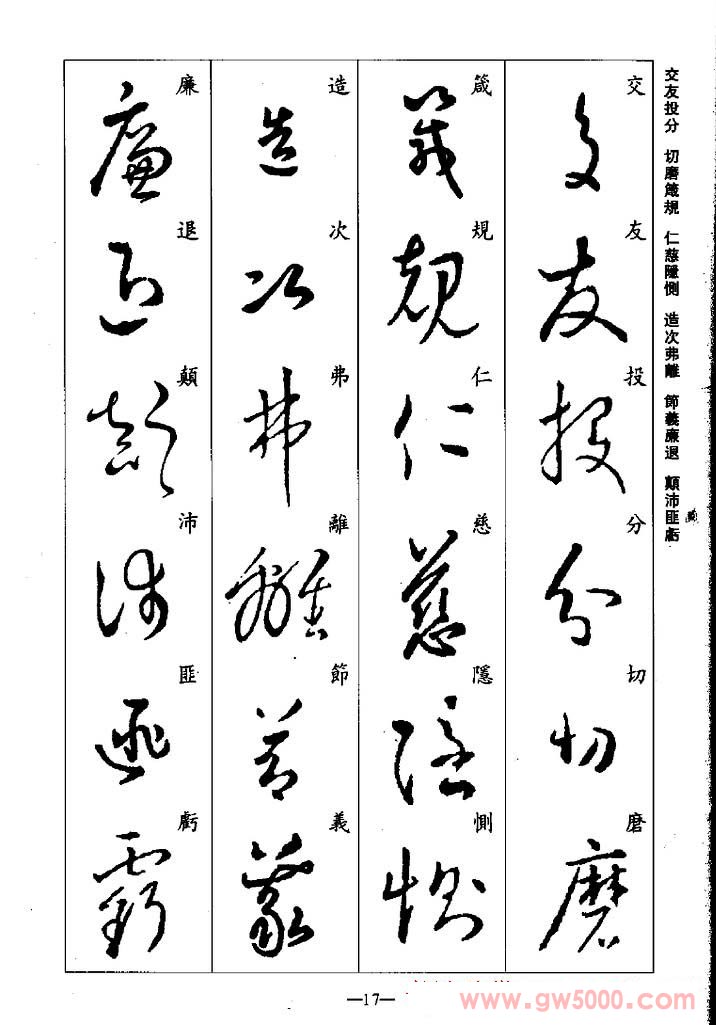 交友投分 切磨箴規 仁慈隱惻 造次弗離 節義廉退 顛沛匪虧
交友投分切磨
箴規仁慈隱惻
造次弗離節義
廉退顛沛匪虧
—17—
www.gw5000.com